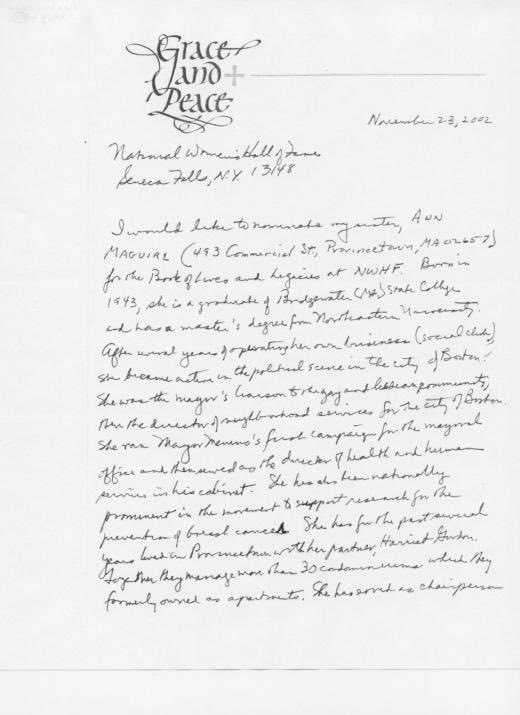 Grace
and
Peace
November 23, 2002
National Women's Hall of Fame
Seneca Falls, N.Y. 13148
I would like to nominate my sister, ANN
MAGUIRE (493 Commercial St., Provincetown, MA 02657)
for the Book of Lives and Legacies at NWHF. Born in
1943, she is a graduate of Bridgewater (MA) State College
and has a master's degree from Northeastern University.
After several years of operating her own business (social club),
she became active in the political scene in the city of Boston.
She was the mayor's liaison to the gay and lesbian community,
then the director of neighborhood services for the city of Boston.
She ran Mayor Menino's first campaign for the mayoral
office and then served as the director of health and human
services in his cabinet. She has also been nationally
prominent in the movement to support research for the
prevention of breast cancer. She has for the past several
years lived in Provincetown with her partner, Harriet Gordon.
Together they manage more than 30 condominiums which they
formerly owned as apartments. She has served as chairperson